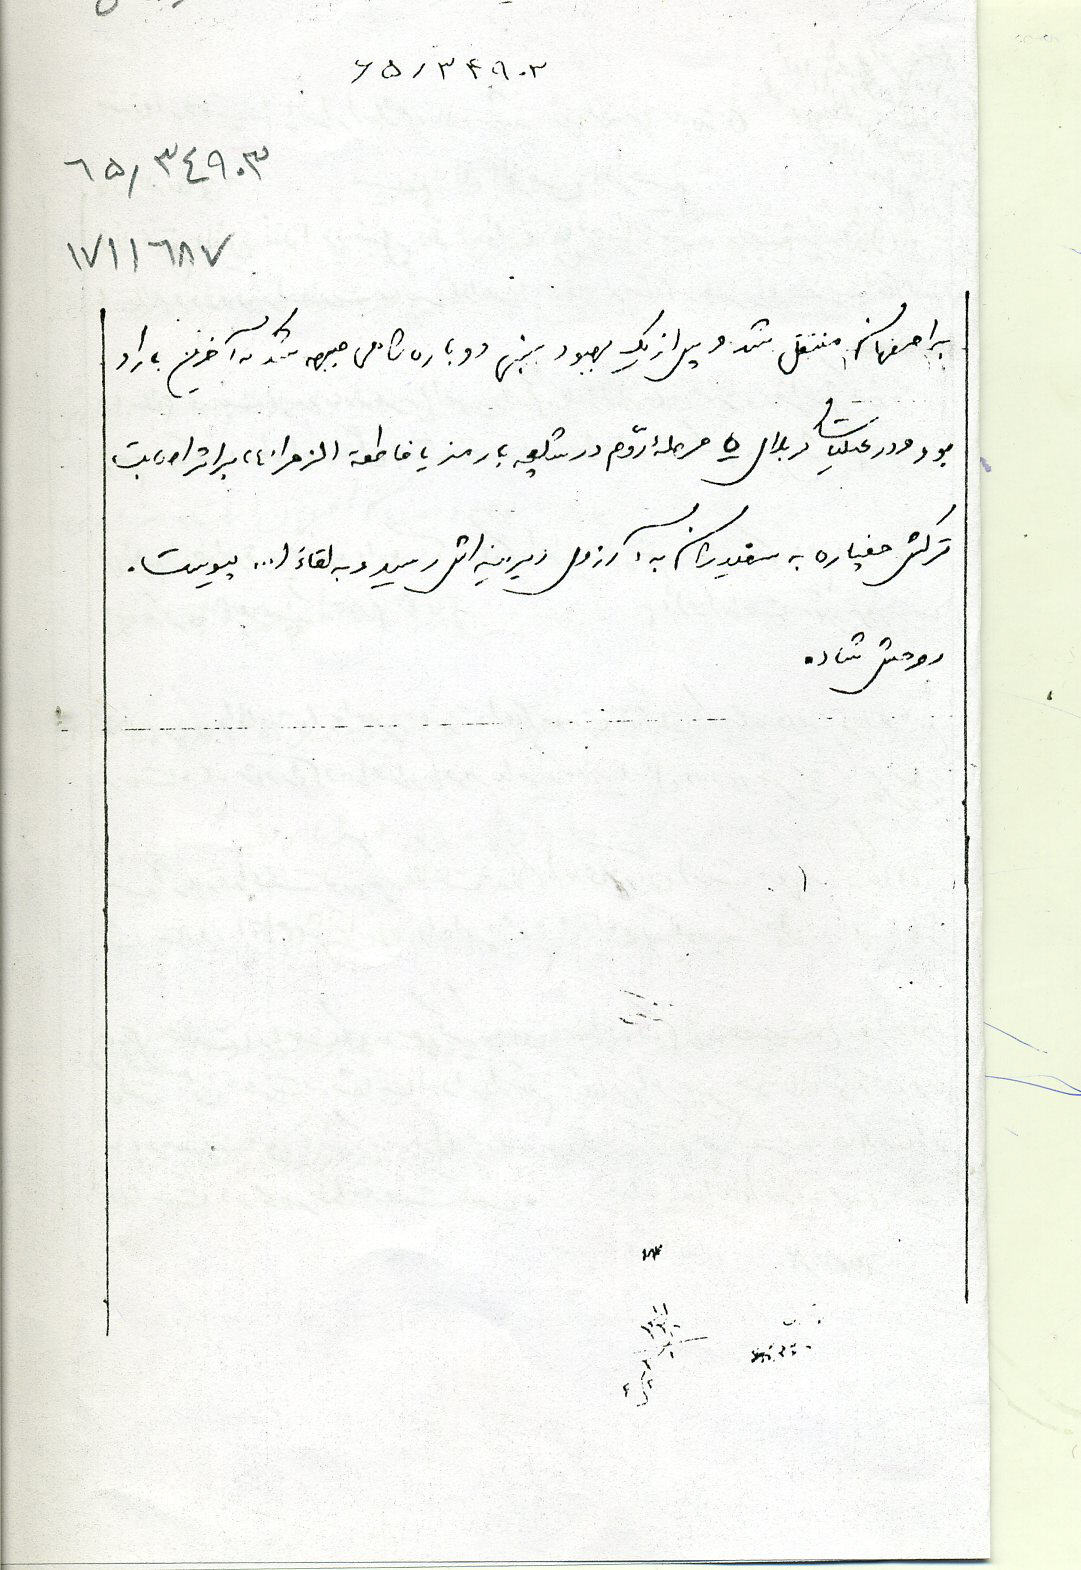 ۶۵/۳۴۹۰۳
٦٥/٣٤٩٠٣
١٧١١٦٨٧
به اصفهان منتقل شد و پس از یک بهبود نسبی دوباره راهی جبهه شد که آخرین بار او
بود و در عملیات کربلای ۵ مرحلهٔ دوّم در شلمچه با رمز یا فاطمة الزهرا (س) بر اثر اصابت
ترکش خمپاره به سفیدران به آرزوی دیرینه اش رسید و به لقاءا... پیوست.
روحش شاد.